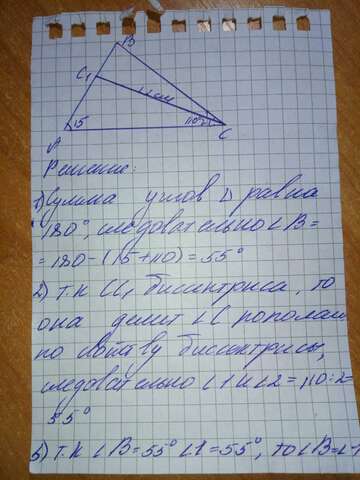 B
C₁
11 см
15
110°
A
C
Решение:
1) Сумма углов Δ равна
180°, следовательно ∠B =
= 180 - (15 + 110) = 55°
2) т.к CC₁ биссектриса, то
она делит ∠C пополам
по свойству биссектрисы,
следовательно ∠1 и ∠2 = 110 : 2 =
55°
3) т.к ∠B = 55° ∠1 = 55°, то ∠B = ∠1